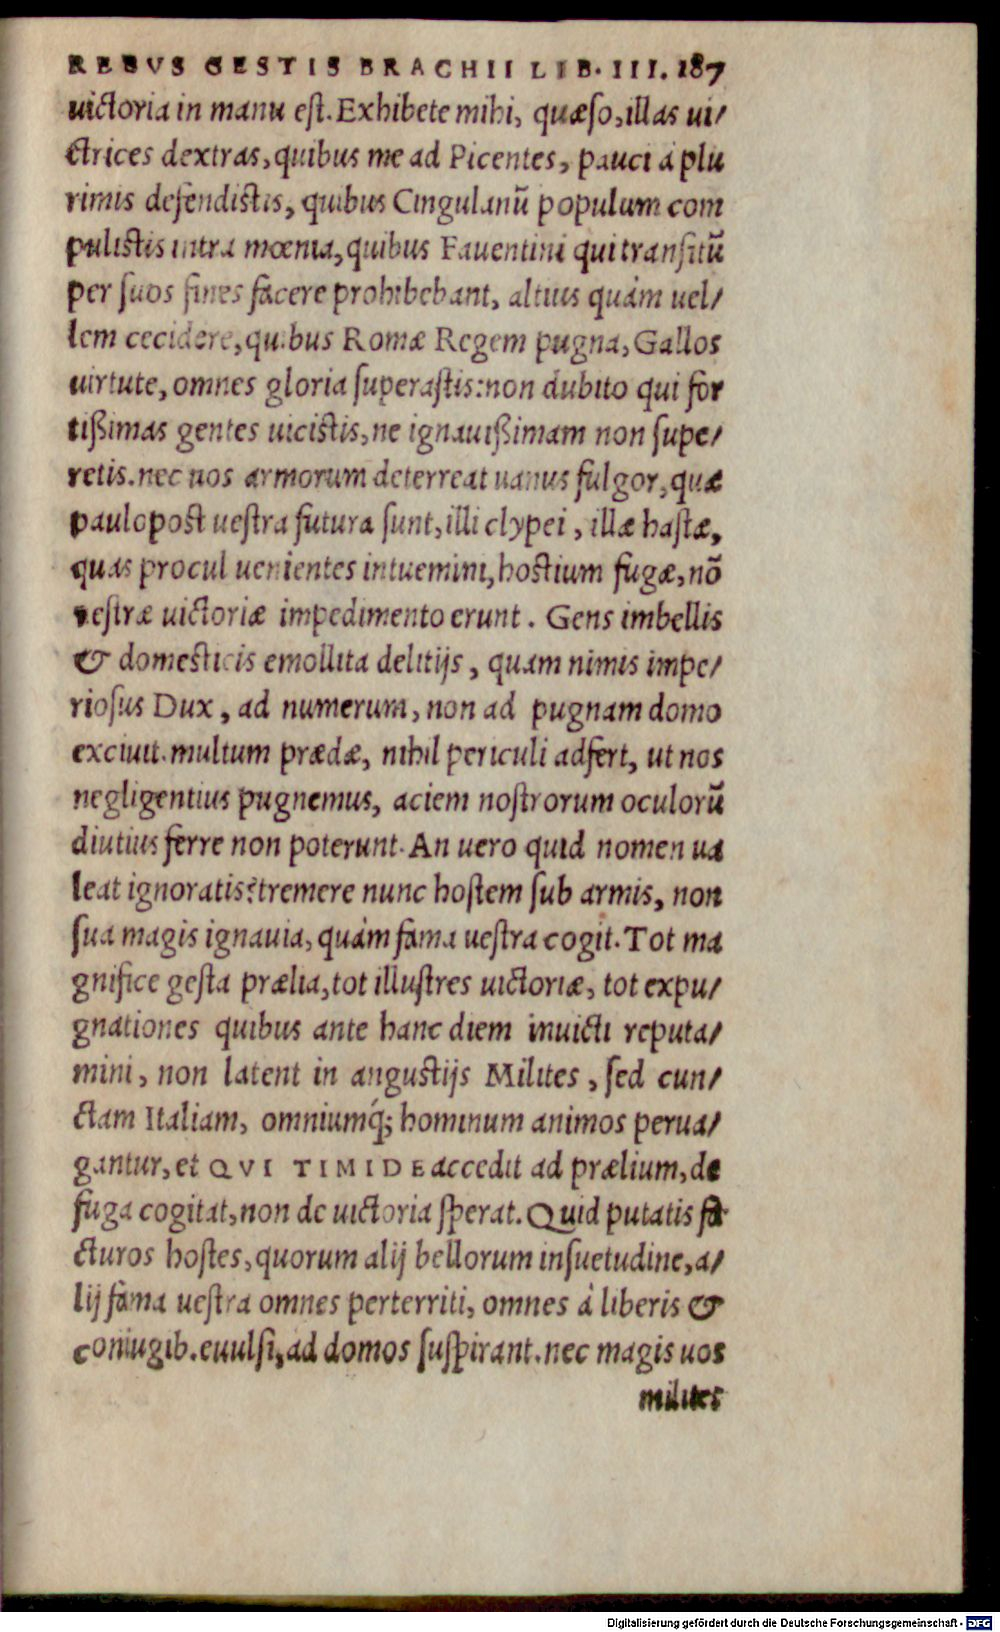 REBVS GESTIS BRACHII LIB. III. 187
uictoria in manu est. Exhibete mihi, quæso, illas ui/
ctrices dextras, quibus me ad Picentes, pauci à plu
rimis defendistis, quibus Cingulanũ populum com
pulistis intra mœnia, quibus Fauentini qui transitũ
per suos fines facere prohibebant, altius quàm uel/
lem cecidere, quibus Romæ Regem pugna, Gallos
uirtute, omnes gloria superastis: non dubito qui for
tißimas gentes uicistis, ne ignauißimam non supe/
retis. nec uos armorum deterreat uanus fulgor, quæ
paulo post uestra futura sunt, illi clypei, illæ hastæ,
quas procul uenientes intuemini, hostium fugæ, nõ
uestræ uictoriæ impedimento erunt. Gens imbellis
& domesticis emollita delitijs, quam nimis impe/
riosus Dux, ad numerum, non ad pugnam domo
exciuit. multum prædæ, nihil periculi adfert, ut nos
negligentius pugnemus, aciem nostrorum oculorũ
diutius ferre non poterunt. An uero quid nomen ua
leat ignoratis? tremere nunc hostem sub armis, non
sua magis ignauia, quàm fama uestra cogit. Tot ma
gnifice gesta prælia, tot illustres uictoriæ, tot expu/
gnationes quibus ante hanc diem inuicti reputa/
mini, non latent in angustijs Milites, sed cun/
ctam Italiam, omniumq́; hominum animos perua/
gantur, et QVI TIMIDE accedit ad prælium, de
fuga cogitat, non de uictoria sperat. Quid putatis fa
cturos hostes, quorum alij bellorum insuetudine, a/
lij fama uestra omnes perterriti, omnes à liberis &
coniugib. euulsi, ad domos suspirant. nec magis uos
milites
Digitalisierung gefördert durch die Deutsche Forschungsgemeinschaft - DFG